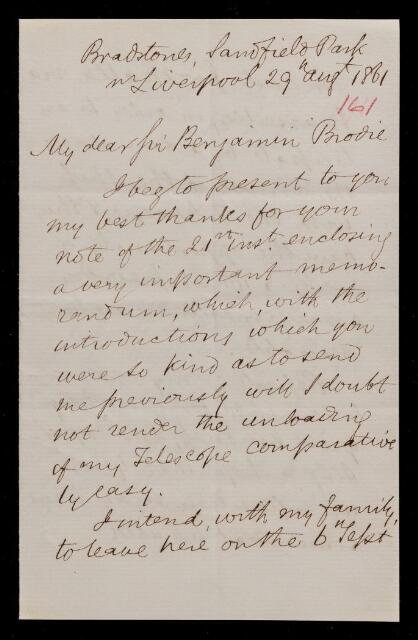 Bradstones, Sandfield Park
nr Liverpool 29th augt 1861
161
My dear Sir Benjamin Brodie
I beg to present to you
my best thanks for your
note of the 21st inst. enclosing
a very important memo-
randum, which, with the
introductions which you
were so kind as to send
me previously will I doubt
not render the unloading
of my Telescope comparative
ly easy.
I intend, with my family,
to leave here on the 6th Sept